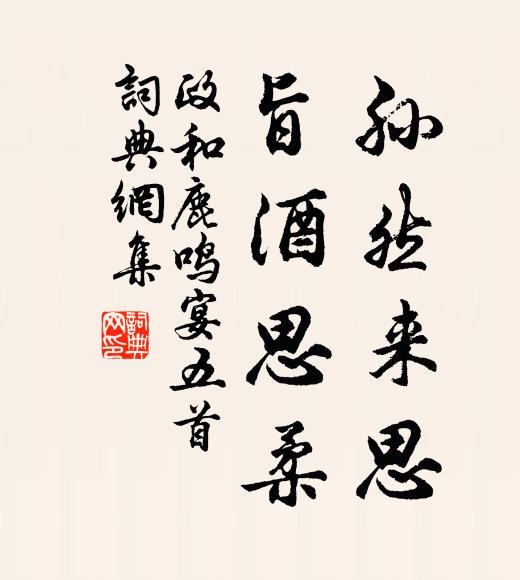 然来思
旨酒思柔
政和鹿鸣宴五首
詞典網集
詞典网印